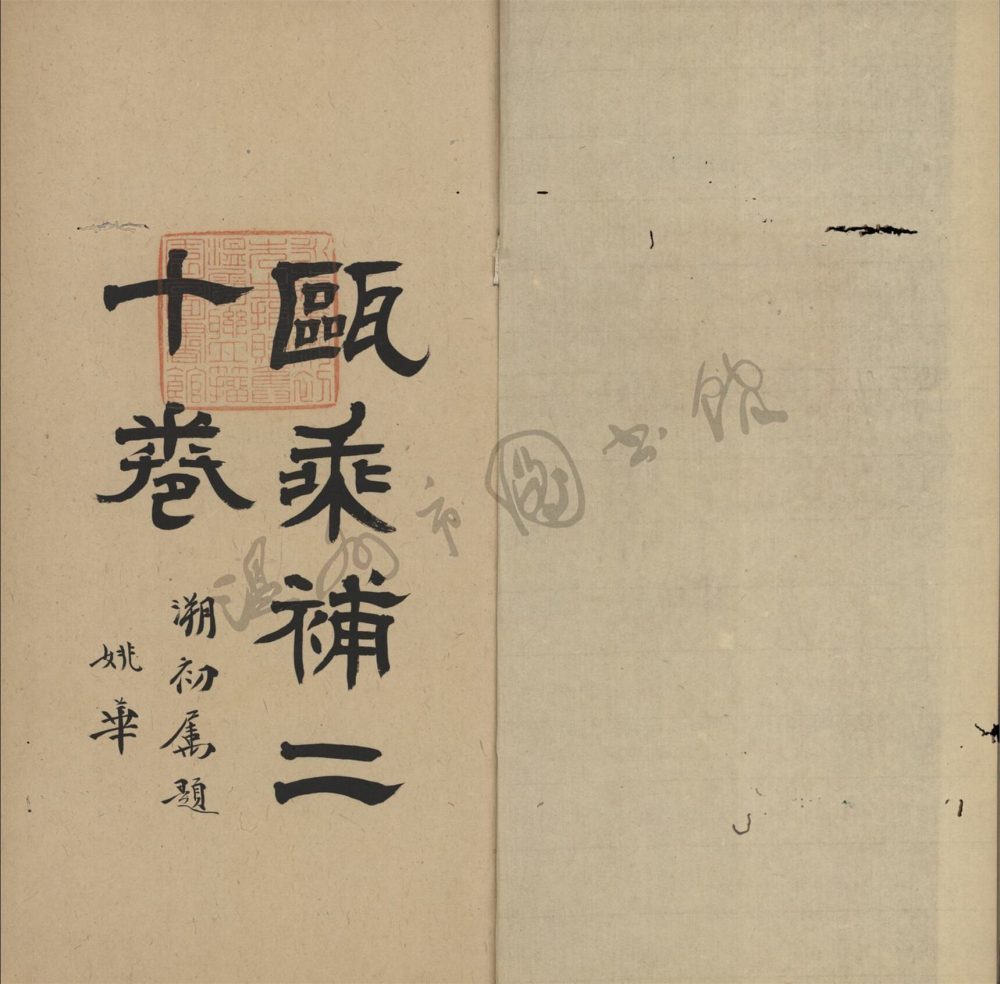 甌乘補二
十卷
溯初属題
姚華
温州市圖书館